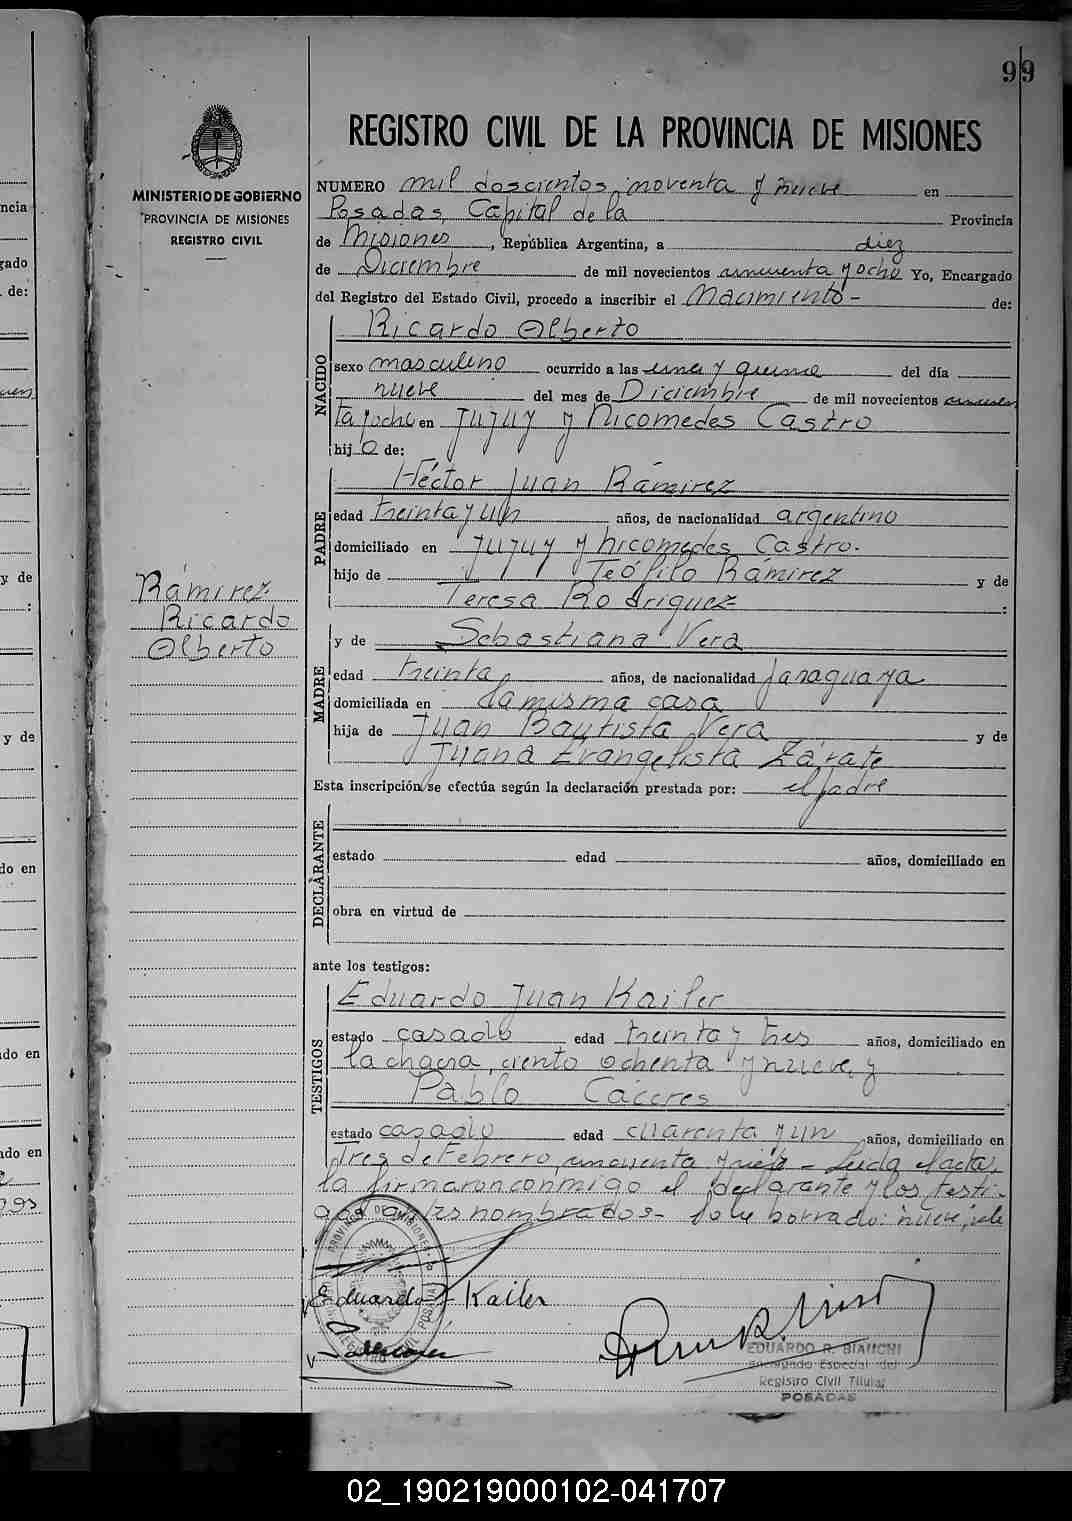 99
REGISTRO CIVIL DE LA PROVINCIA DE MISIONES
MINISTERIO DE GOBIERNO
PROVINCIA DE MISIONES
REGISTRO CIVIL
NUMERO mil doscientos noventa y nueve en
Posadas, Capital de la Provincia
de Misiones, República Argentina, a diez
de Diciembre de mil novecientos cincuenta y ocho Yo, Encargado
del Registro del Estado Civil, procedo a inscribir el Nacimiento- de:
NACIDO
Ricardo Alberto
sexo masculino ocurrido a las una y quince del día
nueve del mes de Diciembre de mil novecientos cincuen
ta y ocho en Jujuy y Nicomedes Castro
hijo de:
PADRE
Héctor Juan Rámirez
edad treinta y un años, de nacionalidad argentino
domiciliado en Jujuy y Nicomedes Castro.
hijo de Teófilo Rámirez y de
Teresa Rodriguez :
Rámirez
Ricardo
Alberto
MADRE
y de Sebastiana Vera
edad treinta años, de nacionalidad paraguaya
domiciliada en la misma casa
hija de Juan Bautista Vera y de
Juana Evangelista Zárate
Esta inscripción se efectúa según la declaración prestada por: el padre
DECLARANTE
estado edad años, domiciliado en
obra en virtud de
ante los testigos:
TESTIGOS
Eduardo Juan Kailer
estado casado edad treinta y tres años, domiciliado en
la chacra, ciento ochenta y nueve, y
Pablo Cáceres
estado casado edad cuarenta y un años, domiciliado en
Tres de Febrero, cincuenta y - Leida el acta,
la firmaron conmigo el declarante y los testi-
gos antes nombrados- Sobre borrado: nueve, vale
Eduardo J Kailer
EDUARDO R. BIANCHI
Encargado Especial del
Registro Civil Titular
POSADAS
02_190219000102-041707